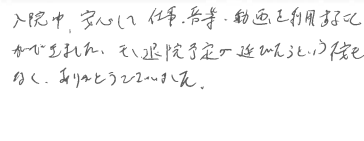 入院中、安心して仕事、音楽、動画を利用すること
ができました。もし退院予定が延びたらという不安も
なく、ありがとうございました。